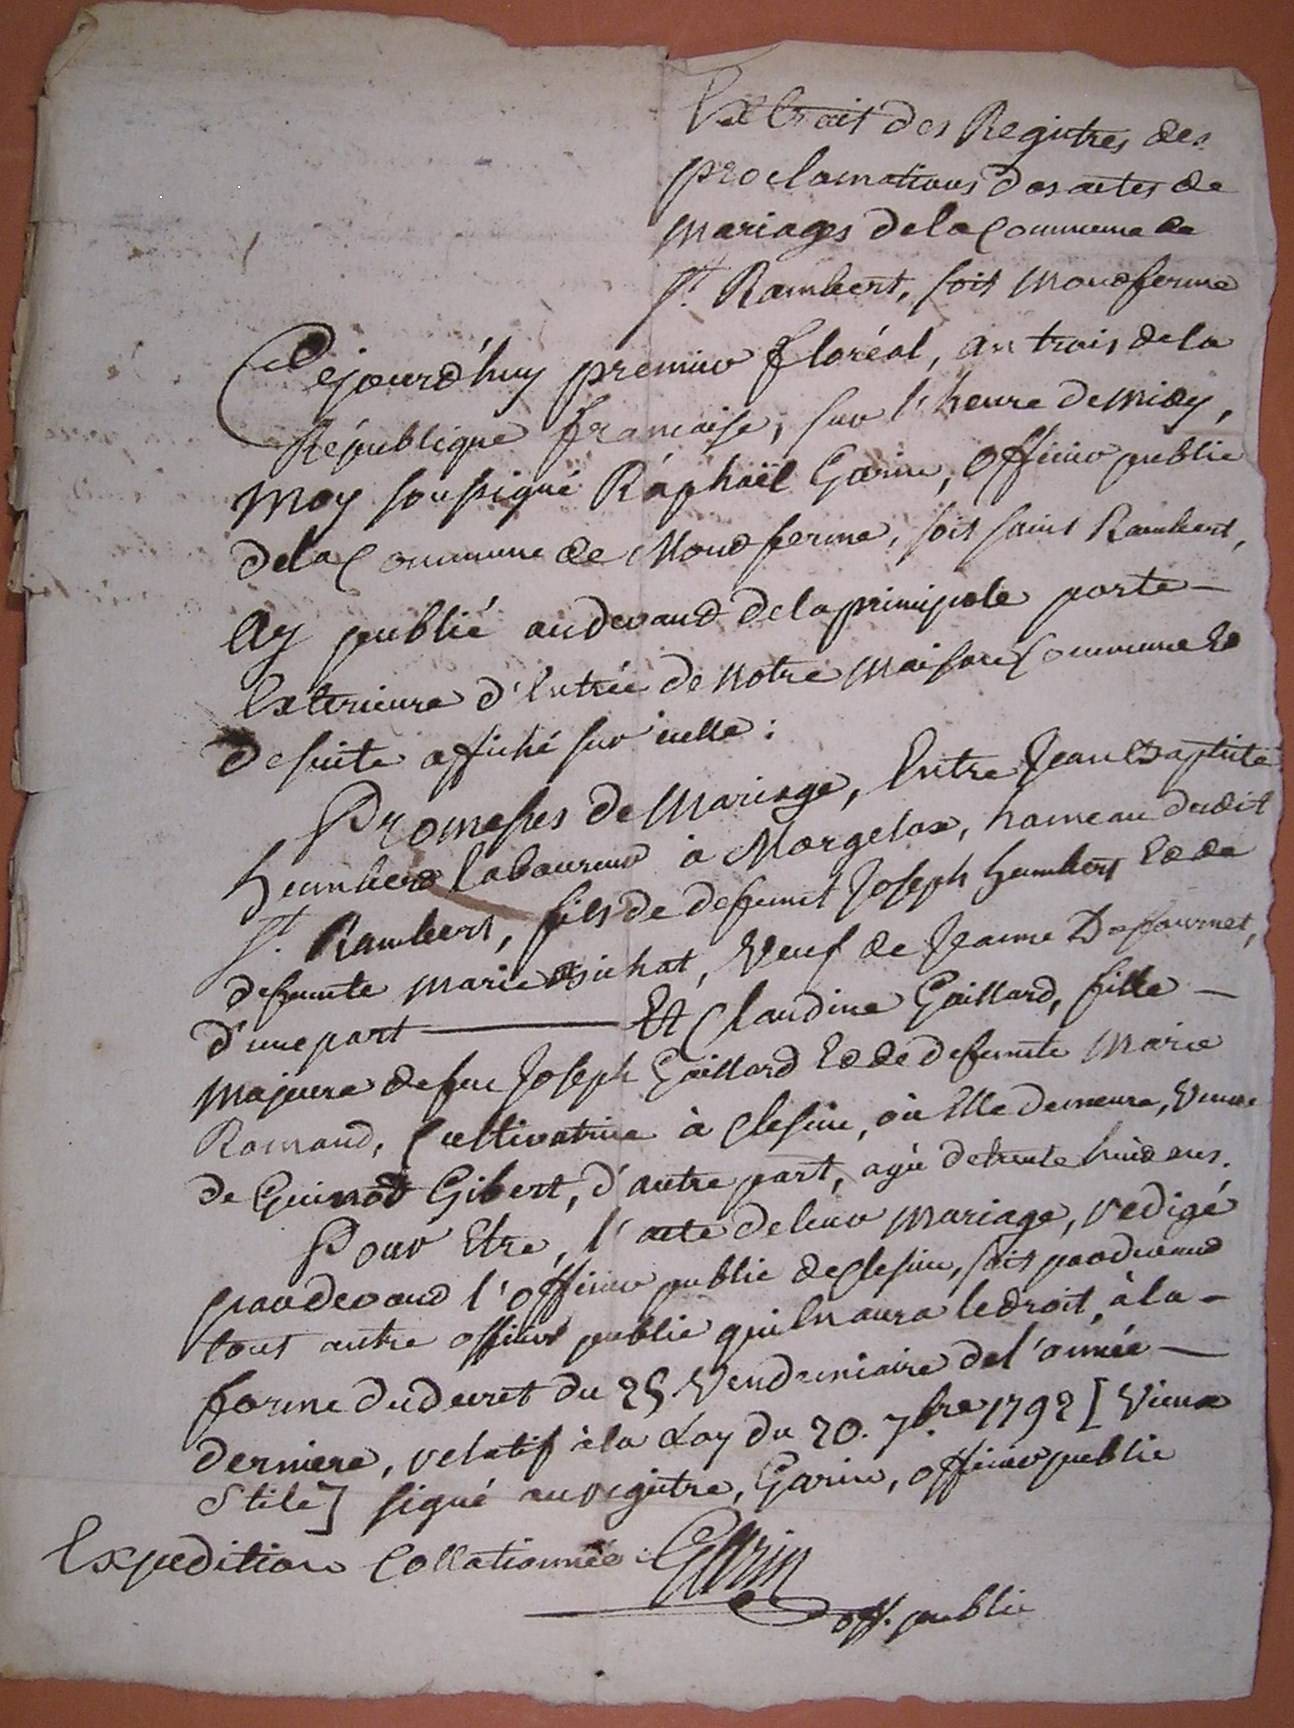 Extrait des Registres des
proclamations des actes de
Mariages de la Commune de
St. Rambert, soit Montferme
Cejourd'huy premier floréal, an trois de la
République francaise, sur l'heure de midy,
Moy soussigné Raphaël Garin, Officier public
de la Commune de Montferme, soit saint Rambert,
Ay publié au devand de la principale porte
Exterieure d'Entrée de Notre Maison Commune Et
de suite affiché sur icelle :
Promesses de Mariage, Entre Jean Baptiste
humbert laboureur à Morgelas, hameau dudit
St. Rambert, fils de defunct Joseph humbert Et de
defunte Marie Bichat, Veuf de Jeanne Dufournet,
d'une part — Et Claudine Gaillard, fille —
Majeure de feu Joseph Gaillard Et de defunte Marie
Romand, Cultivatrice à Clesieu, où Elle demeure, Veuve
de Guinod Gibert, d'autre part, agée de trente huit ans.
Pour Etre, l'acte de leur Mariage, redigé
pardevand l'Officier public de Clesieu, soit pardevand
tout autre officier public qui En aura le droit, à la —
forme du decret du 25 Vendemiaire de l'année —
derniere, relatif à la Loy du 20. 7bre 1792 [ Vieux
Stile ] signé au registre, Garin, officier public
Expedition Collationnée : Garin
off. public